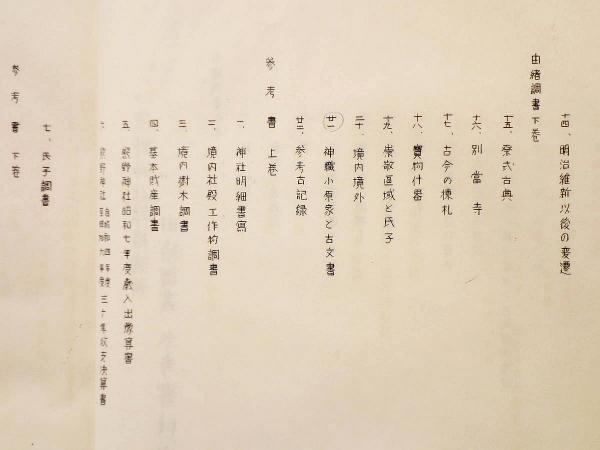 十四、明治維新以後の変遷
由緒調書 下巻
十五、祭式古典
十六、別當寺
十七、古今の棟札
十八、寶物什器
十九、崇敬區域と氏子
二十、境内境外
廿一 神職小原家と古文書
廿二、参考古記録
参考書 上巻
一、神社明細書寫
二、境内社殿工作物調書
三、境内樹木調書
四、基本財産調書
五、熊野神社昭和七年度歳入出豫算書
六、熊野神社 自昭和四年度 三ヶ年収支決算書
七、氏子調書
参考書 下巻